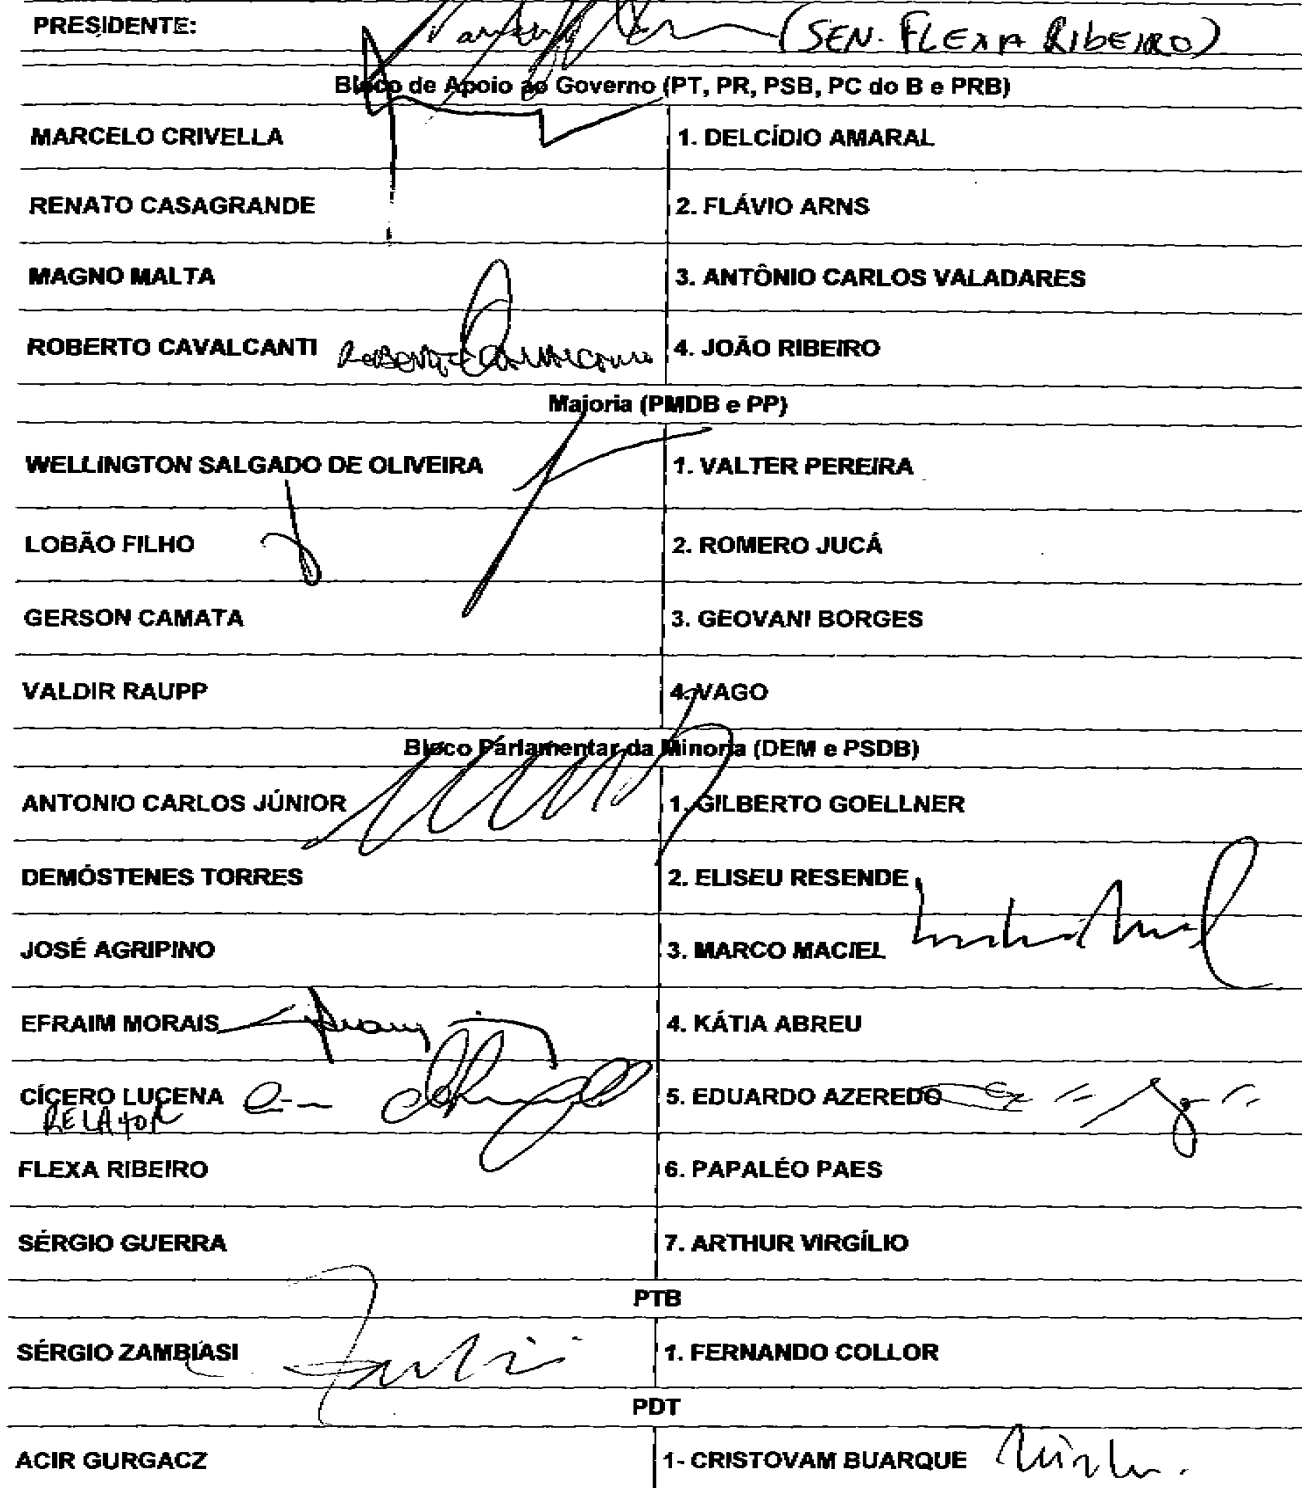 PRESIDENTE: (SEN. FLEXA RIBEIRO)
Bloco de Apoio ao Governo (PT, PR, PSB, PC do B e PRB)
MARCELO CRIVELLA 1. DELCÍDIO AMARAL
RENATO CASAGRANDE 2. FLÁVIO ARNS
MAGNO MALTA 3. ANTÔNIO CARLOS VALADARES
ROBERTO CAVALCANTI Roberto Cavalcanti 4. JOÃO RIBEIRO
Maioria (PMDB e PP)
WELLINGTON SALGADO DE OLIVEIRA 1. VALTER PEREIRA
LOBÃO FILHO 2. ROMERO JUCÁ
GERSON CAMATA 3. GEOVANI BORGES
VALDIR RAUPP 4. VAGO
Bloco Parlamentar da Minoria (DEM e PSDB)
ANTONIO CARLOS JÚNIOR 1. GILBERTO GOELLNER
DEMÓSTENES TORRES 2. ELISEU RESENDE
JOSÉ AGRIPINO 3. MARCO MACIEL
EFRAIM MORAIS 4. KÁTIA ABREU
CÍCERO LUCENA 5. EDUARDO AZEREDO
RELATOR
FLEXA RIBEIRO 6. PAPALÉO PAES
SÉRGIO GUERRA 7. ARTHUR VIRGÍLIO
PTB
SÉRGIO ZAMBIASI 1. FERNANDO COLLOR
PDT
ACIR GURGACZ 1- CRISTOVAM BUARQUE